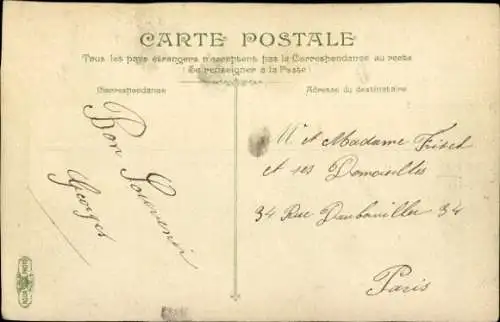 CARTE POSTALE
Tous les pays étrangers n'acceptent pas la Correspondance au recto
(Se renseigner à la Poste)
Correspondance
Adresse du destinataire
Bon Souvenir
Georges
Mr et Madame Frisch
et ses Demoiselles
34 Rue Daubauviller 34
Paris